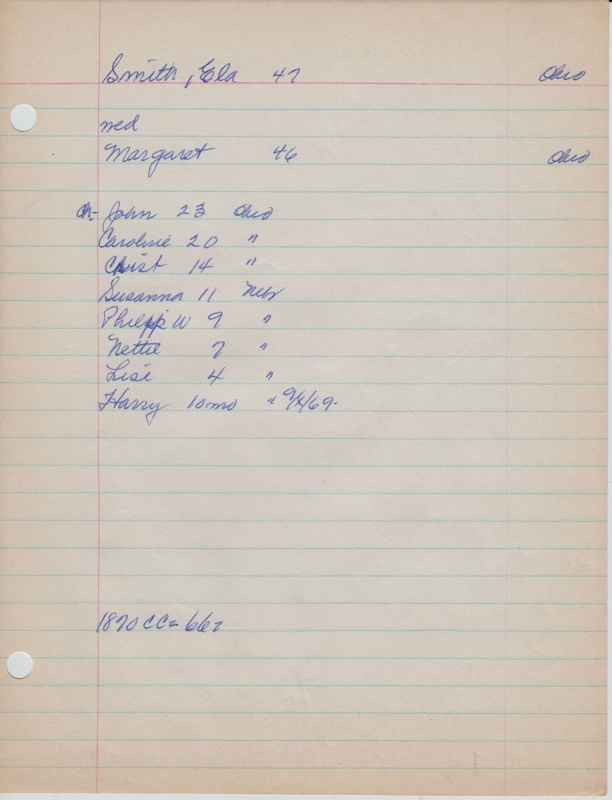 Smith, Ela 47 Ohio
med
Margaret 46 Ohio
ch- John 23 Ohio
Caroline 20 "
Christ 14 "
Susanna 11 Nebr
Philipp W 9 "
Nettie 7 "
Lise 4 "
Harry 10 mo " 9/X/69-
1870 CC= 66=